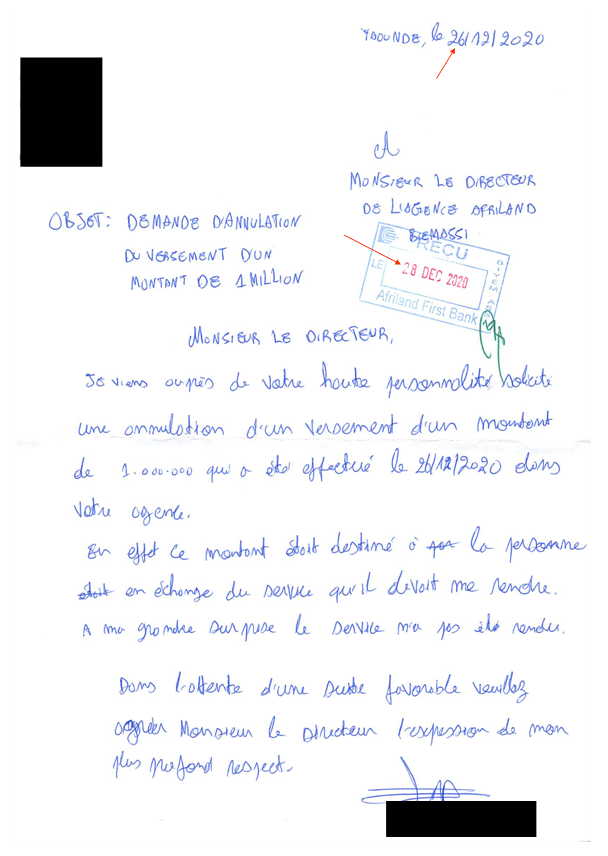 YAOUNDE, le 26/12/2020
A
MONSIEUR LE DIRECTEUR
DE L'AGENCE AFRILAND
BIEMASSI
OBJET: DEMANDE D'ANNULATION
DU VERSEMENT D'UN
MONTANT DE 1 MILLION
RECU
LE 28 DEC 2020
Afriland First Bank
MONSIEUR LE DIRECTEUR,
Je viens auprès de votre haute personnalité solicité
une annulation d'un versement d'un montant
de 1.000.000 qui a été effectué le 26/12/2020 dans
votre agence.
En effet ce montant était destiné à la personne
était en échange du service qu'il devait me rendre.
A ma grande surprise le service m'a pas été rendu.
Dans l'attente d'une suite favorable veuillez
agréer Monsieur le Directeur l'expression de mon
plus profond respect.